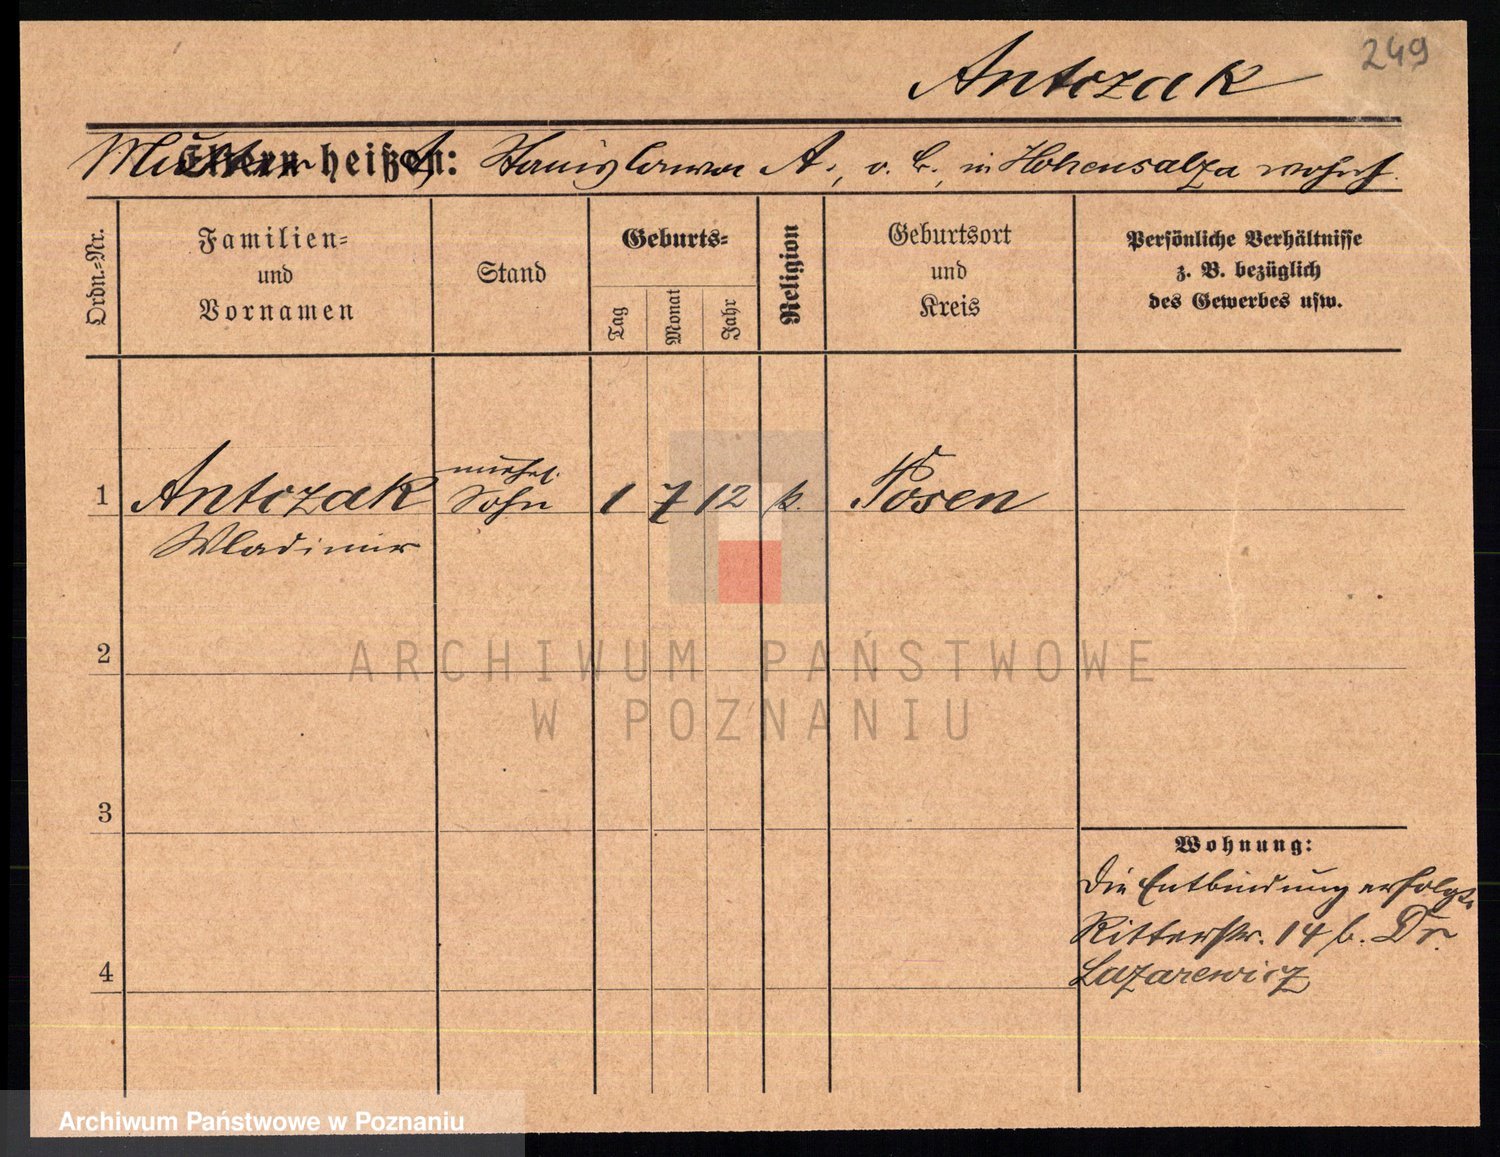 249
Antczak
Mutter heißt: Stanislawa A., o. B., in Hohensalza wohnh.
Eltern heißen:
Ordn.=Nr.
Familien=
und
Vornamen
Stand
Geburts=
Tag
Monat
Jahr
Religion
Geburtsort
und
Kreis
Persönliche Verhältnisse
z. B. bezüglich
des Gewerbes usw.
1 Antczak unehel. Sohn 1 7 12 k. Posen
Wladimir
2
3
4
Wohnung:
Die Entbindung erfolgte
Ritterstr. 14 b. Dr.
Lazarewicz
ARCHIWUM PAŃSTWOWE
W POZNANIU
Archiwum Państwowe w Poznaniu